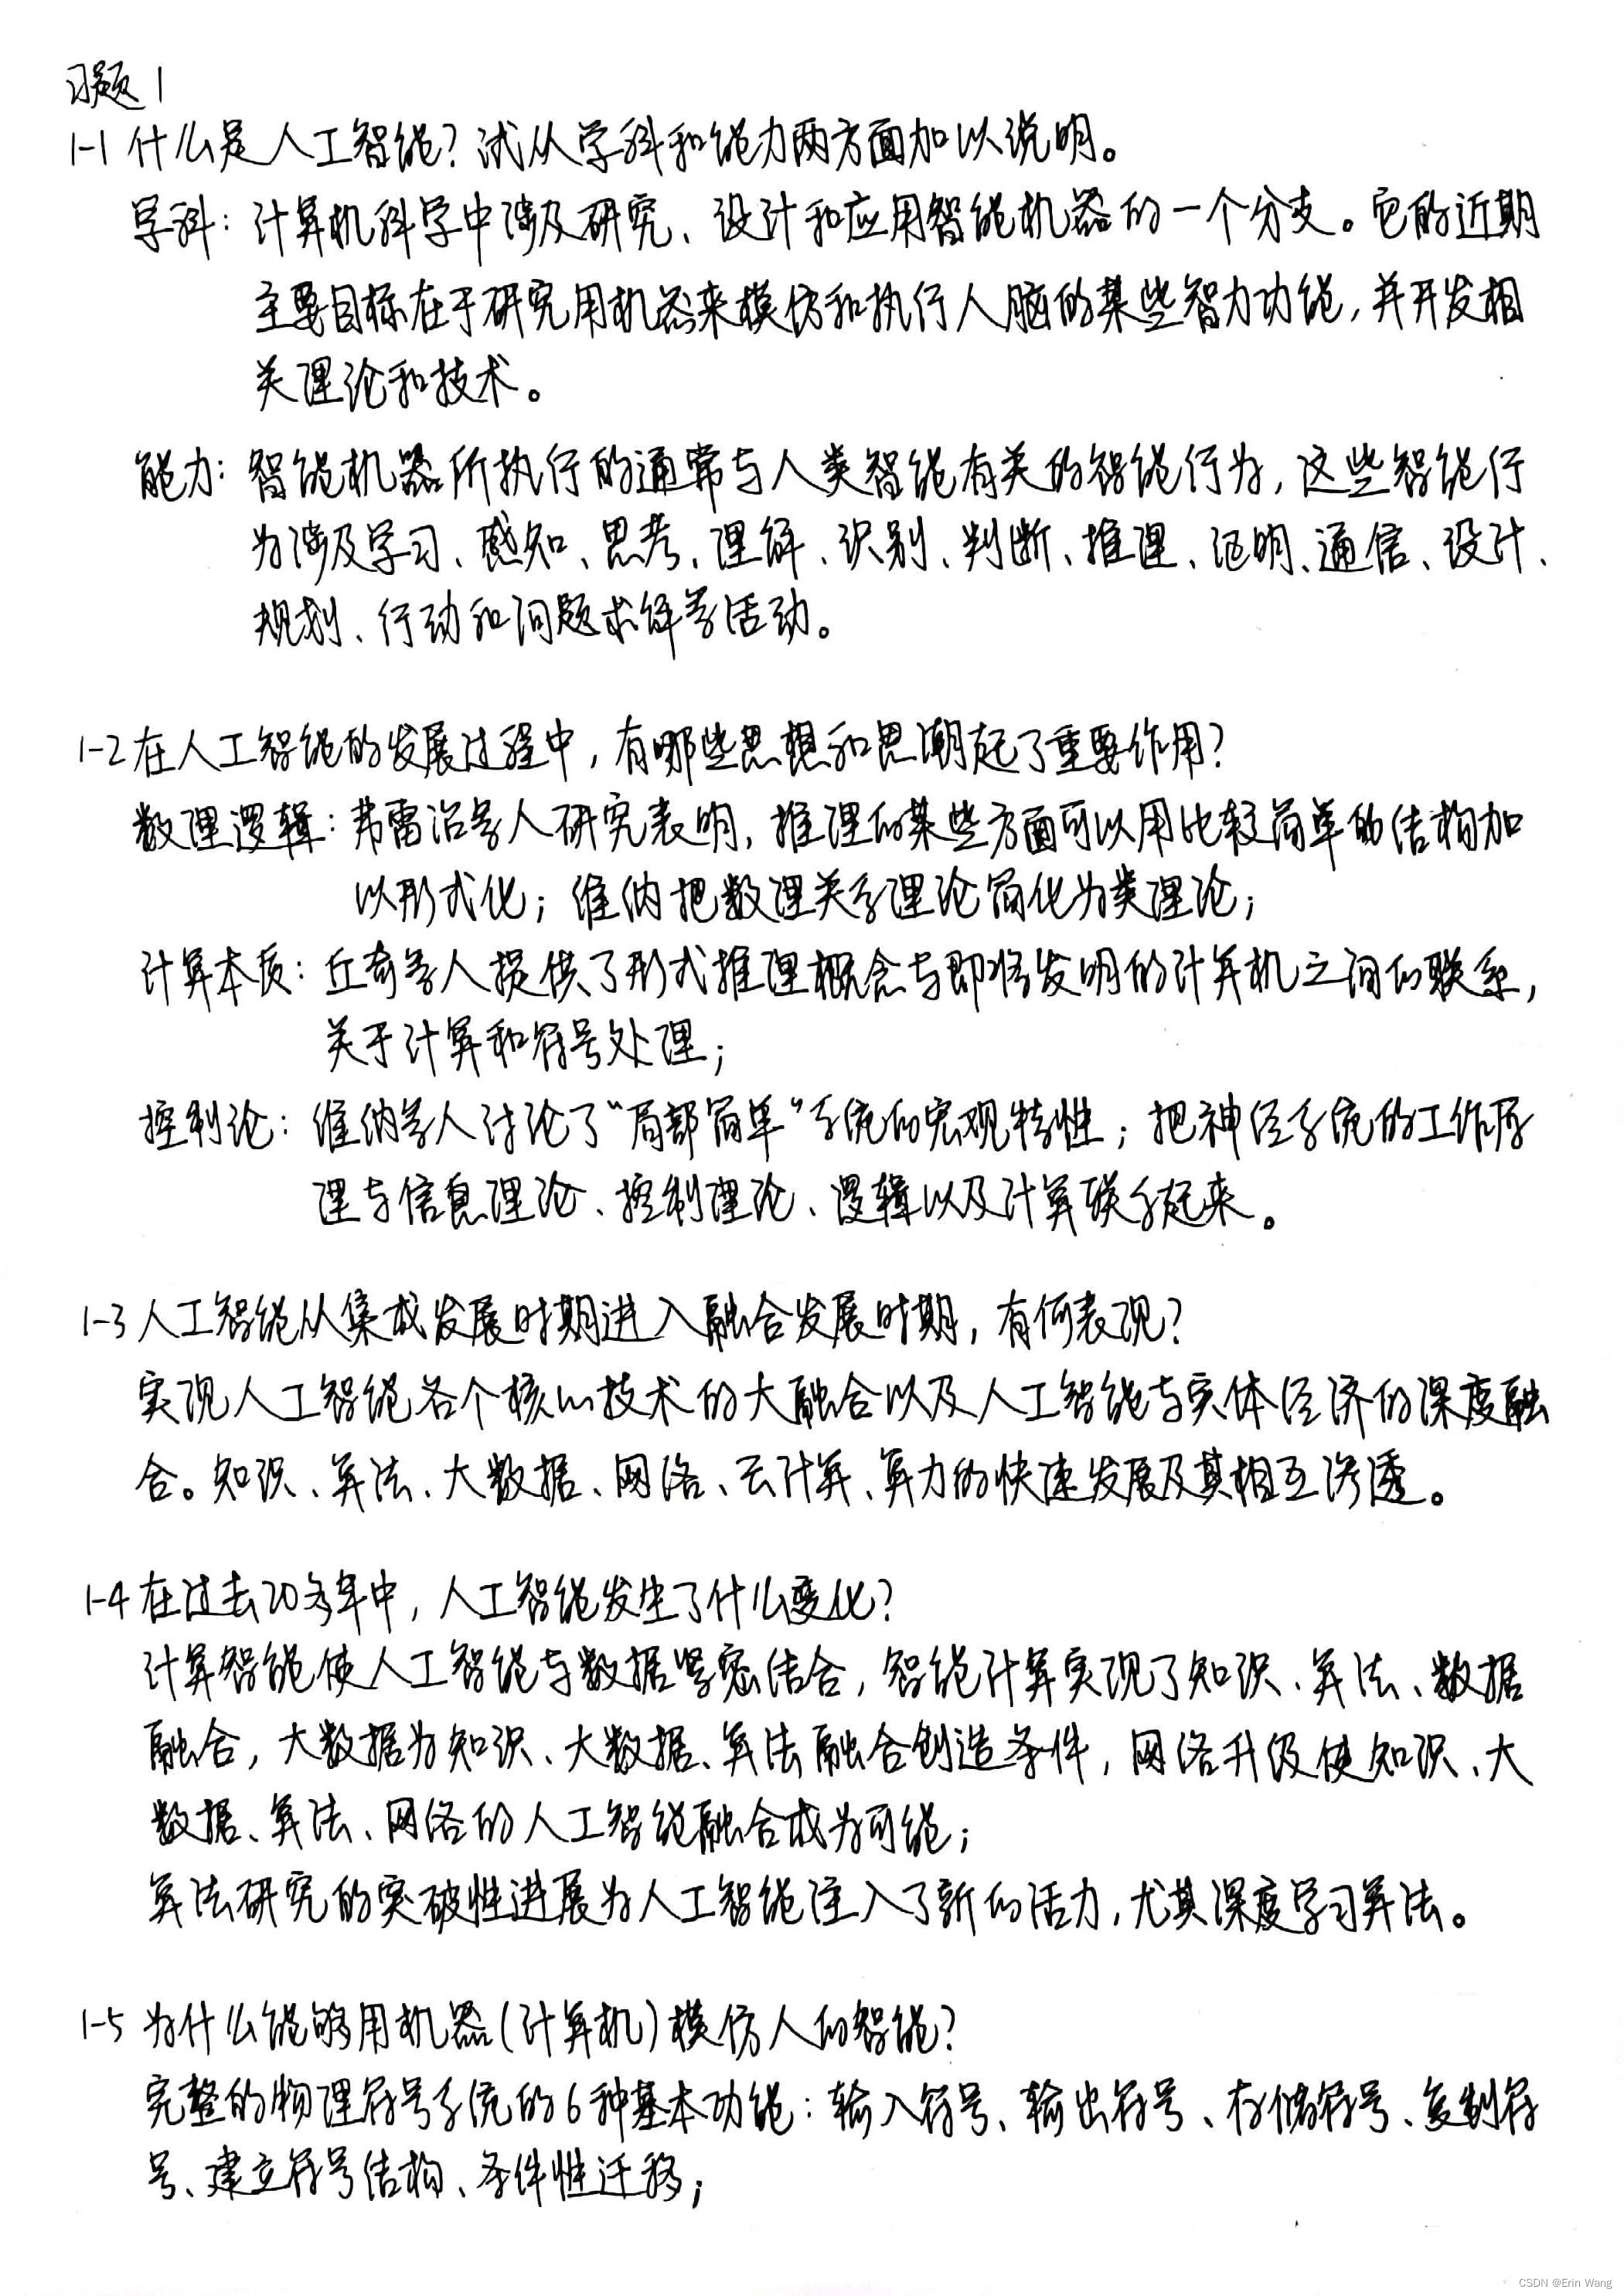 习题1
1-1 什么是人工智能？试从学科和能力两方面加以说明。
学科：计算机科学中涉及研究、设计和应用智能机器的一个分支。它的近期
主要目标在于研究用机器来模仿和执行人脑的某些智力功能，并开发相
关理论和技术。
能力：智能机器所执行的通常与人类智能有关的智能行为，这些智能行
为涉及学习、感知、思考、理解、识别、判断、推理、证明、通信、设计、
规划、行动和问题求解等活动。
1-2 在人工智能的发展过程中，有哪些思想和思潮起了重要作用？
数理逻辑：弗雷治等人研究表明，推理的某些方面可以用比较简单的结构加
以形式化；维纳把数理关系理论简化为类理论；
计算本质：丘奇等人提供了形式推理概念与即将发明的计算机之间的联系，
关于计算和符号处理；
控制论：维纳等人讨论了“局部简单”系统的宏观特性；把神经系统的工作原
理与信息理论、控制理论、逻辑以及计算联系起来。
1-3 人工智能从集成发展时期进入融合发展时期，有何表现？
实现人工智能各个核心技术的大融合以及人工智能与实体经济的深度融
合。知识、算法、大数据、网络、云计算、算力的快速发展及其相互渗透。
1-4 在过去20多年中，人工智能发生了什么变化？
计算智能使人工智能与数据紧密结合，智能计算实现了知识、算法、数据
融合，大数据为知识、大数据、算法融合创造条件，网络升级使知识、大
数据、算法、网络的人工智能融合成为可能；
算法研究的突破性进展为人工智能注入了新的活力，尤其深度学习算法。
1-5 为什么能够用机器(计算机)模仿人的智能？
完整的物理符号系统的6种基本功能：输入符号、输出符号、存储符号、复制符
号、建立符号结构、条件性迁移；
CSDN @Erin Wang